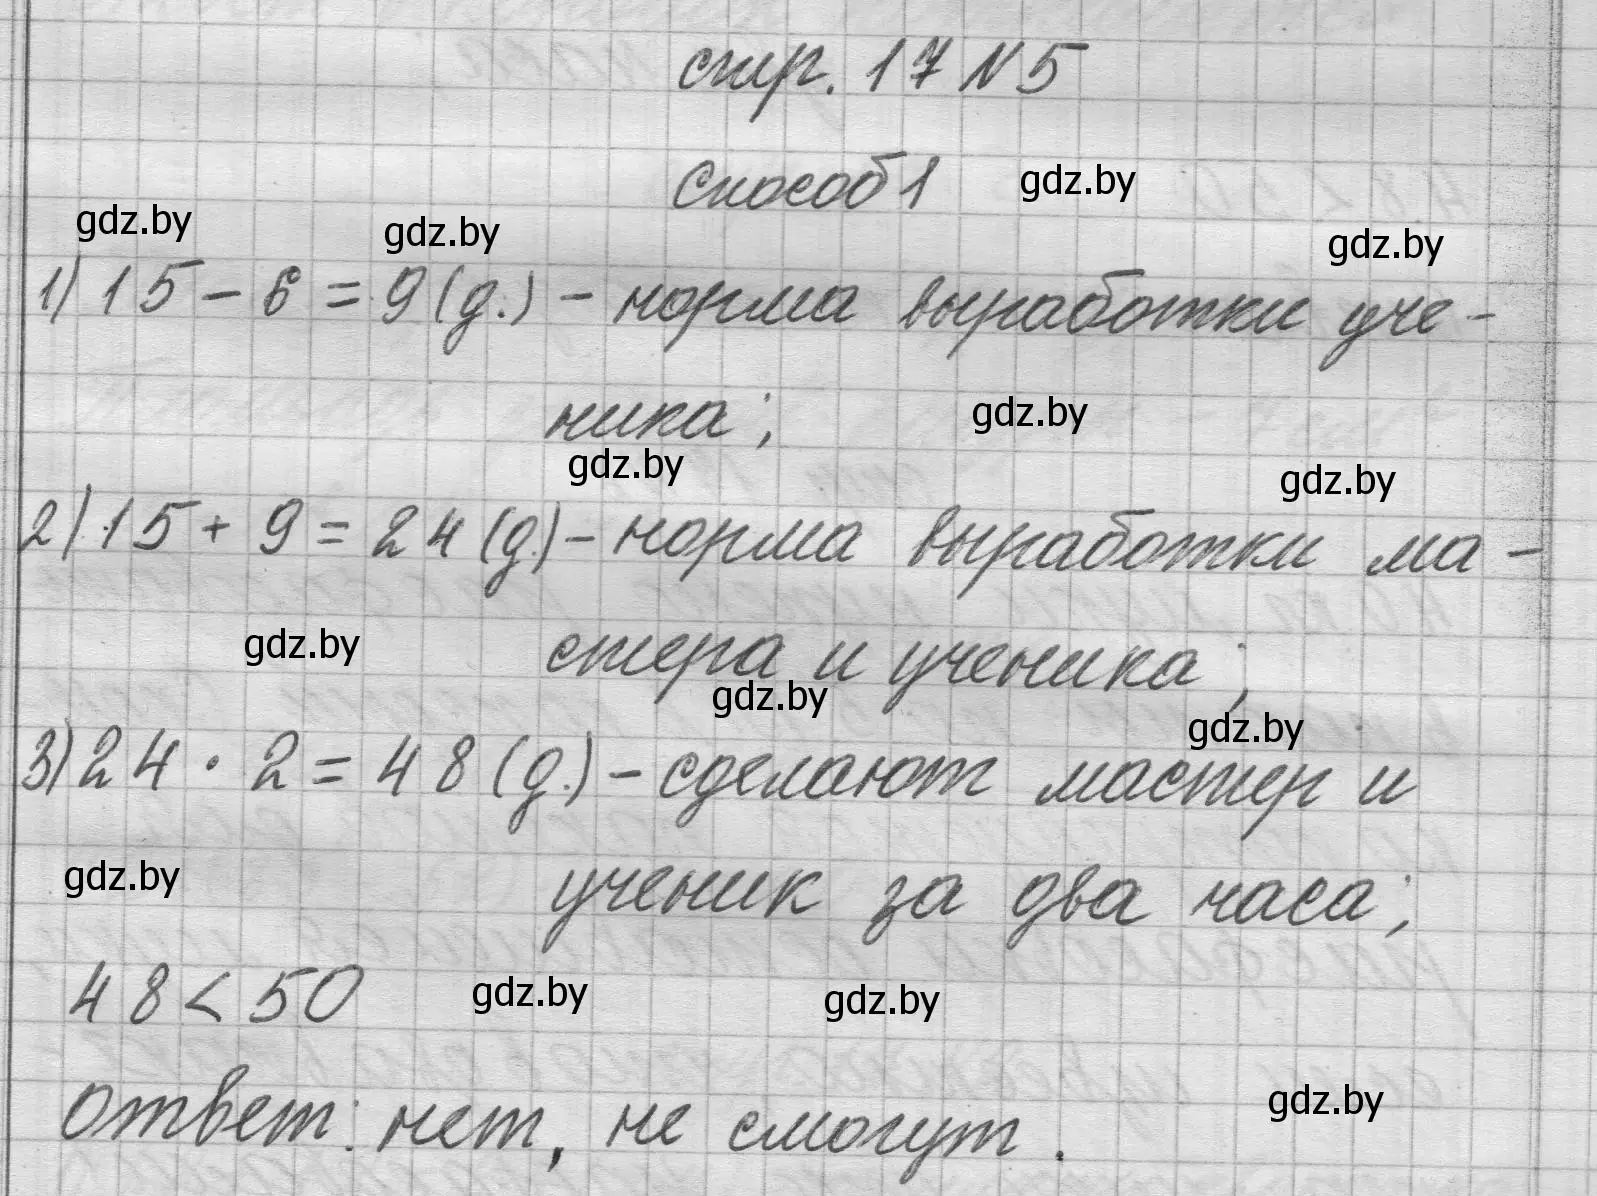 стр. 17 N 5
Способ 1
gdz.by
gdz.by
gdz.by
gdz.by
1) 15 - 6 = 9 (д.) - норма выработки уче-
ника;
gdz.by
gdz.by
gdz.by
2) 15 + 9 = 24 (д.) - норма выработки ма-
стера и ученика;
gdz.by
gdz.by
gdz.by
3) 24 · 2 = 48 (д.) - сделают мастер и
ученик за два часа;
gdz.by
48 < 50
gdz.by
gdz.by
Ответ: нет, не смогут.
gdz.by